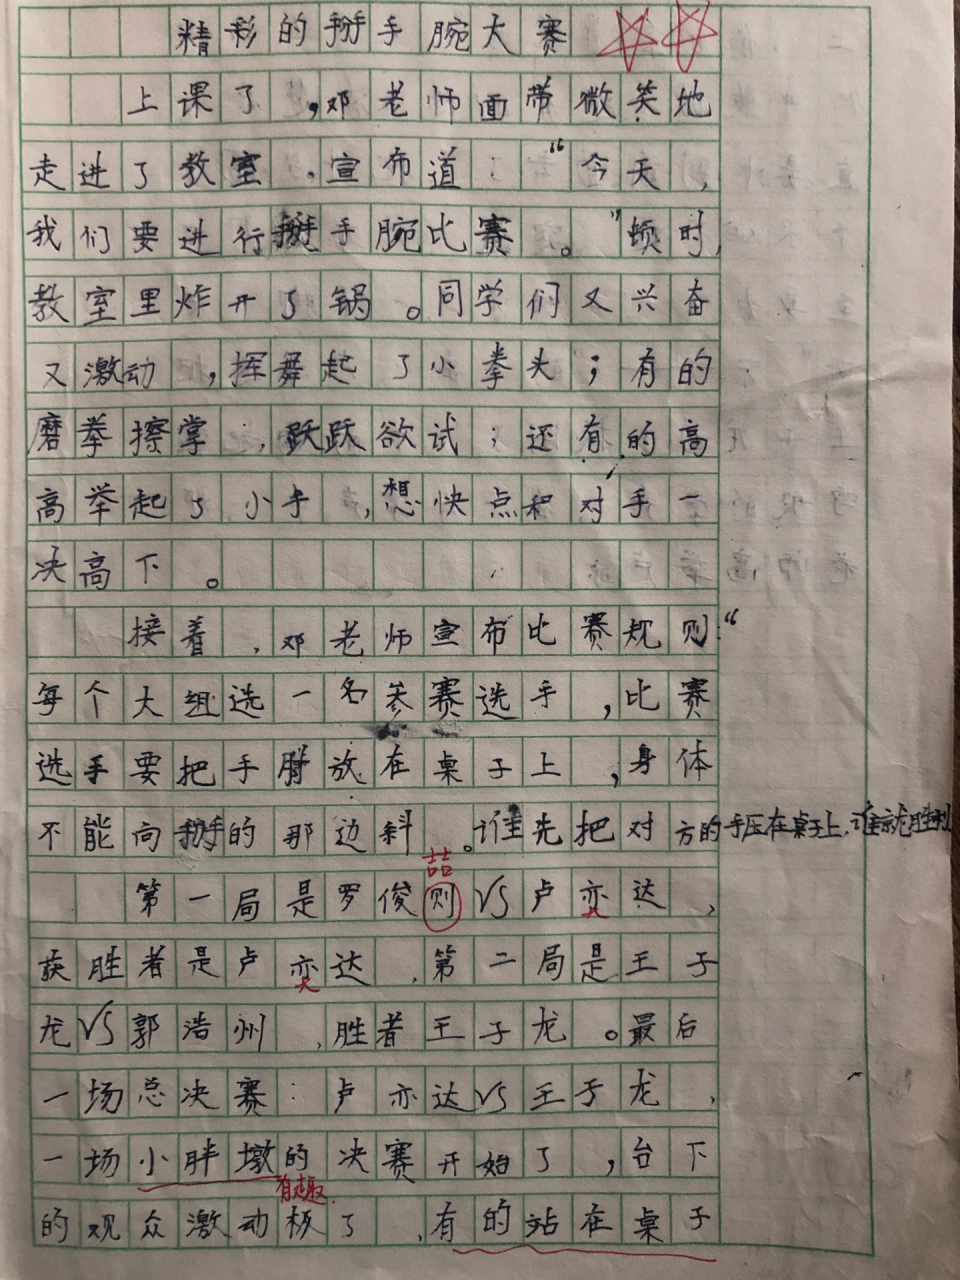 精彩的掰手腕大赛
上课了,邓老师面带微笑地
走进了教室,宣布道:“今天,
我们要进行掰手腕比赛。”顷时,
教室里炸开了锅。同学们又兴奋
又激动,挥舞起了小拳头;有的
磨拳擦掌,跃跃欲试;还有的高
高举起了小手,想快点和对手一
决高下。
接着,邓老师宣布比赛规则:“
每个大组选一名参赛选手,比赛
选手要把手臂放在桌子上,身体
不能向掰的那边斜。谁先把对方的手压在桌子上,谁就胜利
喆
第一局是罗俊则VS卢亦达,
获胜者是卢亦达,第二局是王子
龙VS郭浩州,胜者王子龙。最后
一场总决赛:卢亦达VS王子龙,
一场小胖墩的决赛开始了,台下
有趣
的观众激动极了,有的站在桌子